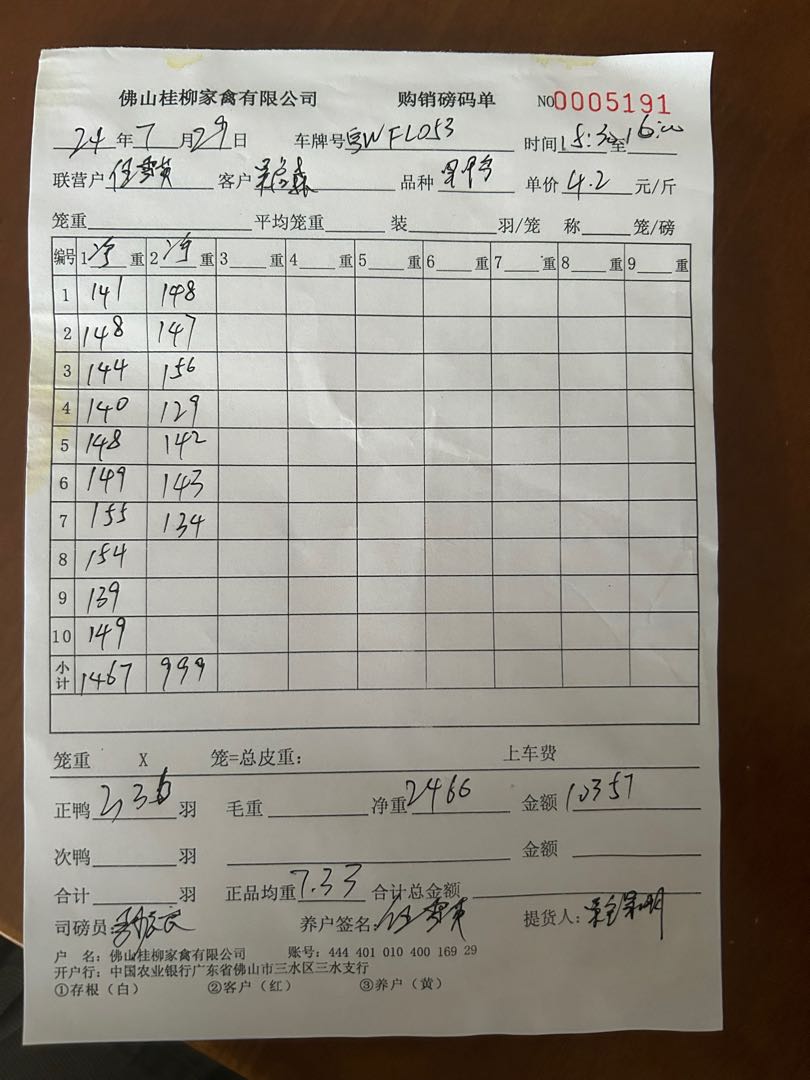 佛山桂柳家禽有限公司 购销磅码单 NO0005191
24年7月29日 车牌号 WFL053 时间15:30至16:00
联营户伍雪英 客户 品种 单价4.2元/斤
笼重 平均笼重 装 羽/笼 称 笼/磅
编号 1净重 2净重 3重 4重 5重 6重 7重 8重 9重
1 141 148
2 148 147
3 144 156
4 140 129
5 148 142
6 149 143
7 155 134
8 154
9 139
10 149
小计 1467 999
笼重 X 笼=总皮重: 上车费
正鸭336羽 毛重 净重2466 金额10357
次鸭 羽 金额
合计 羽 正品均重7.33 合计总金额
司磅员: 养户签名:伍雪英 提货人:
户 名: 佛山桂柳家禽有限公司 账号: 444 401 010 400 169 29
开户行: 中国农业银行广东省佛山市三水区三水支行
①存根(白) ②客户(红) ③养户(黄)